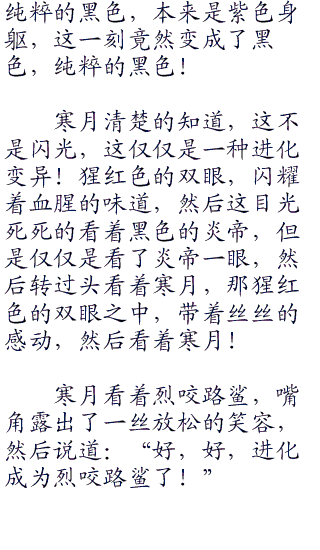 纯粹的黑色，本来是紫色身
躯，这一刻竟然变成了黑
色，纯粹的黑色！
寒月清楚的知道，这不
是闪光，这仅仅是一种进化
变异！猩红色的双眼，闪耀
着血腥的味道，然后这目光
死死的看着黑色的炎帝，但
是仅仅是看了炎帝一眼，然
后转过头看着寒月，那猩红
色的双眼之中，带着丝丝的
感动，然后看着寒月！
寒月看着烈咬路鲨，嘴
角露出了一丝放松的笑容，
然后说道：“好，好，进化
成为烈咬路鲨了！”